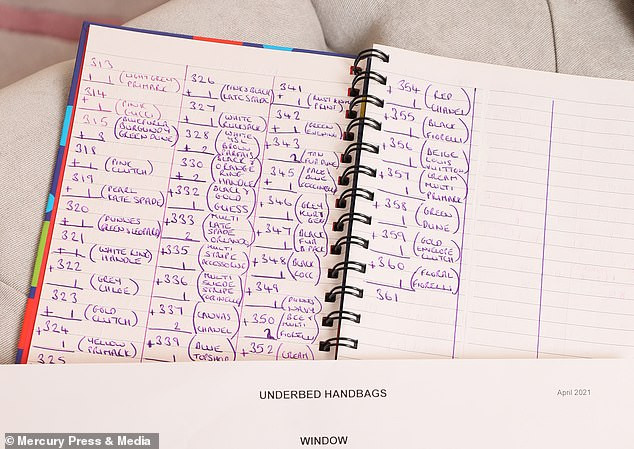 313
+ 1 (LIGHT GREY
PRIMARK)
314
+ 1 (PINK
GUCCI)
315 (BLUE FURLA
BURGUNDY
+ 3 GREEN DUNE)
318
+ 1 (PINK
CLUTCH)
319
+ 1 (PEARL
KATE SPADE)
320
+ 1 (DUNNES
GREEN LEOPARD)
321
+ 1 (WHITE RING
HANDLE)
+322
1 (GREY
CHLOE)
323
+ 1 (GOLD
CLUTCH)
+324
1 (YELLOW
PRIMARK)
325
326
+ 1 (PINK & BLACK
KATE SPADE)
327
+ 1 (WHITE
RUCKSACK)
328 (WHITE
YSL
+ 2 BROWN
330 (BLACK &
ORANGE
+ 2 RING
HANDLE)
+332 (BLACK &
GOLD
1 GUESS)
+333 (MULTI
KATE
SPADE
2 ORLANDO)
+335 (MULTI
STRIPE
1
+336 (MULTI
SUEDE
STRIPE
1 FIORELLI)
+337 (CANVAS
2 CHANEL)
+339 (BLUE
1 TOPSHOP)
341
+ 1
PRINT)
342
+ 1 (GREEN
343
+ 2 (TAN
FUR DUNE)
345 (PALE
BLUE
+ 1 COCCINELLE)
+346 (GREY
KURT
1 GEIGER)
+347 (BLACK
FUR
1 B.PACK)
+348 (BLACK
1
+349
1 (DUNNES
NAVY)
+350 (BEE &
MULTI
2 FIORELLI)
+352 (CREAM
+354 (RED
1 CHANEL)
+355 (BLACK
1 FIORELLI)
+356 (BEIGE
LOUIS
1 VUITTON)
+357 (CREAM
MULTI
1 PRIMARK)
+358 (GREEN
1 DUNE)
+359 (GOLD
ENVELOPE
1 CLUTCH)
+360 (FLORAL
1 FIORELLI)
361
UNDERBED HANDBAGS
April 2021
WINDOW
© Mercury Press & Media